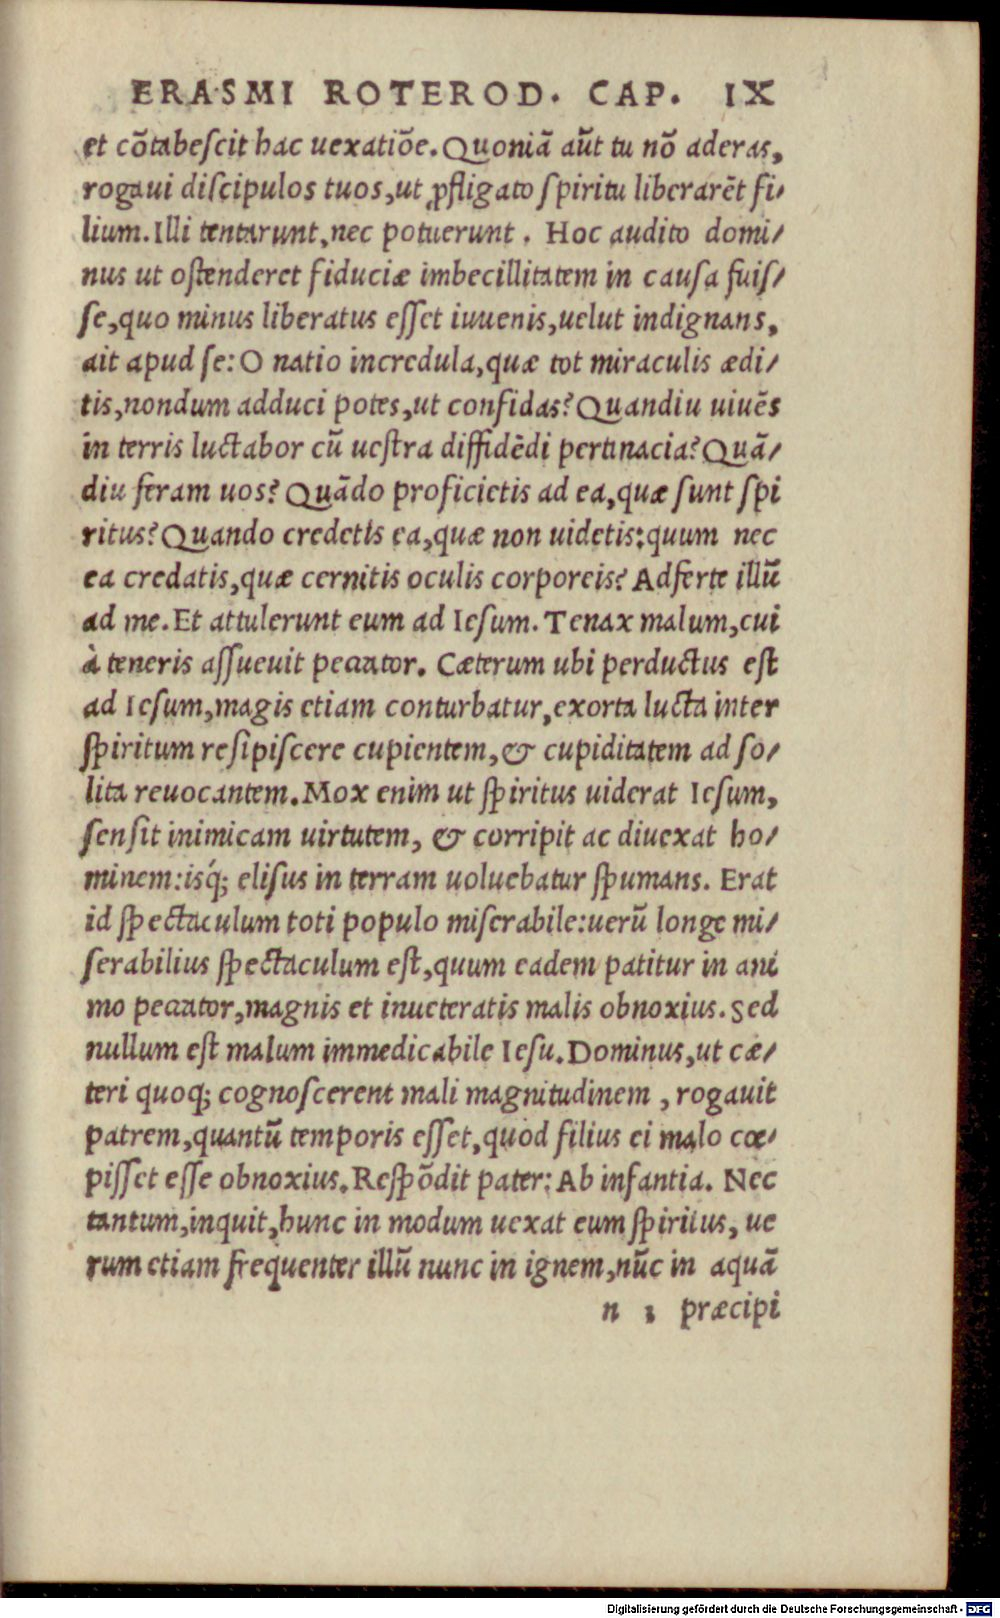 ERASMI ROTEROD. CAP. IX
et cõtabeſcit hac uexatiõe. Quoniã aũt tu nõ aderas,
rogaui diſcipulos tuos, ut ꝓfligato ſpiritu liberarẽt fi/
lium. Illi tentarunt, nec potuerunt. Hoc audito domi/
nus ut oſtenderet fiduciæ imbecillitatem in cauſa fuiſ/
ſe, quo minus liberatus eſſet iuuenis, uelut indignans,
ait apud ſe: O natio incredula, quæ tot miraculis ædi/
tis, nondum adduci potes, ut confidas? Quandiu uiuẽs
in terris luctabor cũ ueſtra diffidẽdi pertinacia? Quã/
diu feram uos? Quãdo proficietis ad ea, quæ ſunt ſpi
ritus? Quando credetis ea, quæ non uidetis: quum nec
ea credatis, quæ cernitis oculis corporeis? Adferte illũ
ad me. Et attulerunt eum ad Ieſum. Tenax malum, cui
à teneris aſſueuit peccator. Cæterum ubi perductus eſt
ad Ieſum, magis etiam conturbatur, exorta lucta inter
ſpiritum reſipiſcere cupientem, & cupiditatem ad ſo/
lita reuocantem. Mox enim ut ſpiritus uiderat Ieſum,
ſenſit inimicam uirtutem, & corripit ac diuexat ho/
minem: iſq́; eliſus in terram uoluebatur ſpumans. Erat
id ſpectaculum toti populo miſerabile: uerũ longe mi/
ſerabilius ſpectaculum eſt, quum eadem patitur in ani
mo peccator, magnis et inueteratis malis obnoxius. Sed
nullum eſt malum immedicabile Ieſu. Dominus, ut cæ/
teri quoq; cognoſcerent mali magnitudinem, rogauit
patrem, quantũ temporis eſſet, quod filius ei malo cœ/
piſſet eſſe obnoxius. Reſpõdit pater: Ab infantia. Nec
tantum, inquit, hunc in modum uexat eum ſpiritus, ue
rum etiam frequenter illũ nunc in ignem, nũc in aquã
n 3 præcipi
Digitalisierung gefördert durch die Deutsche Forschungsgemeinschaft - DFG